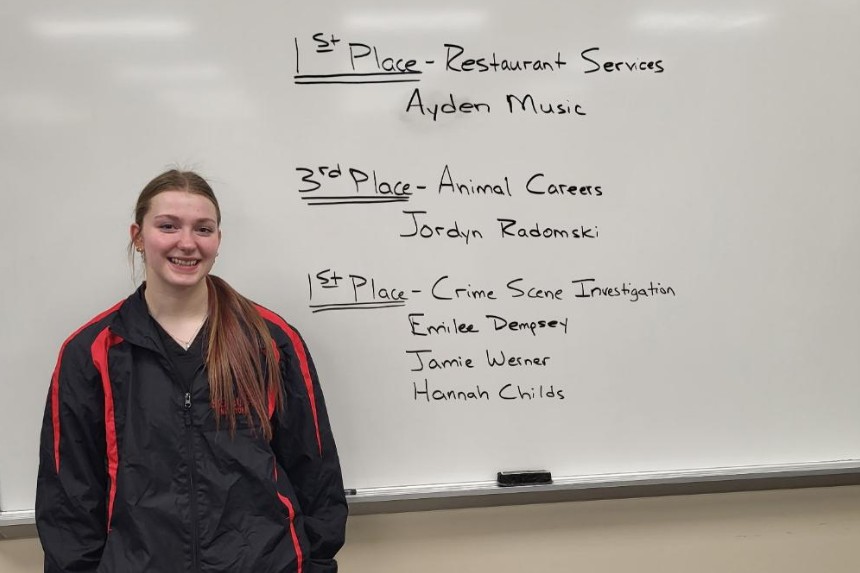 1st Place - Restaurant Services
Ayden Music
3rd Place - Animal Careers
Jordyn Radomski
1st Place - Crime Scene Investigation
Emilee Dempsey
Jamie Werner
Hannah Childs